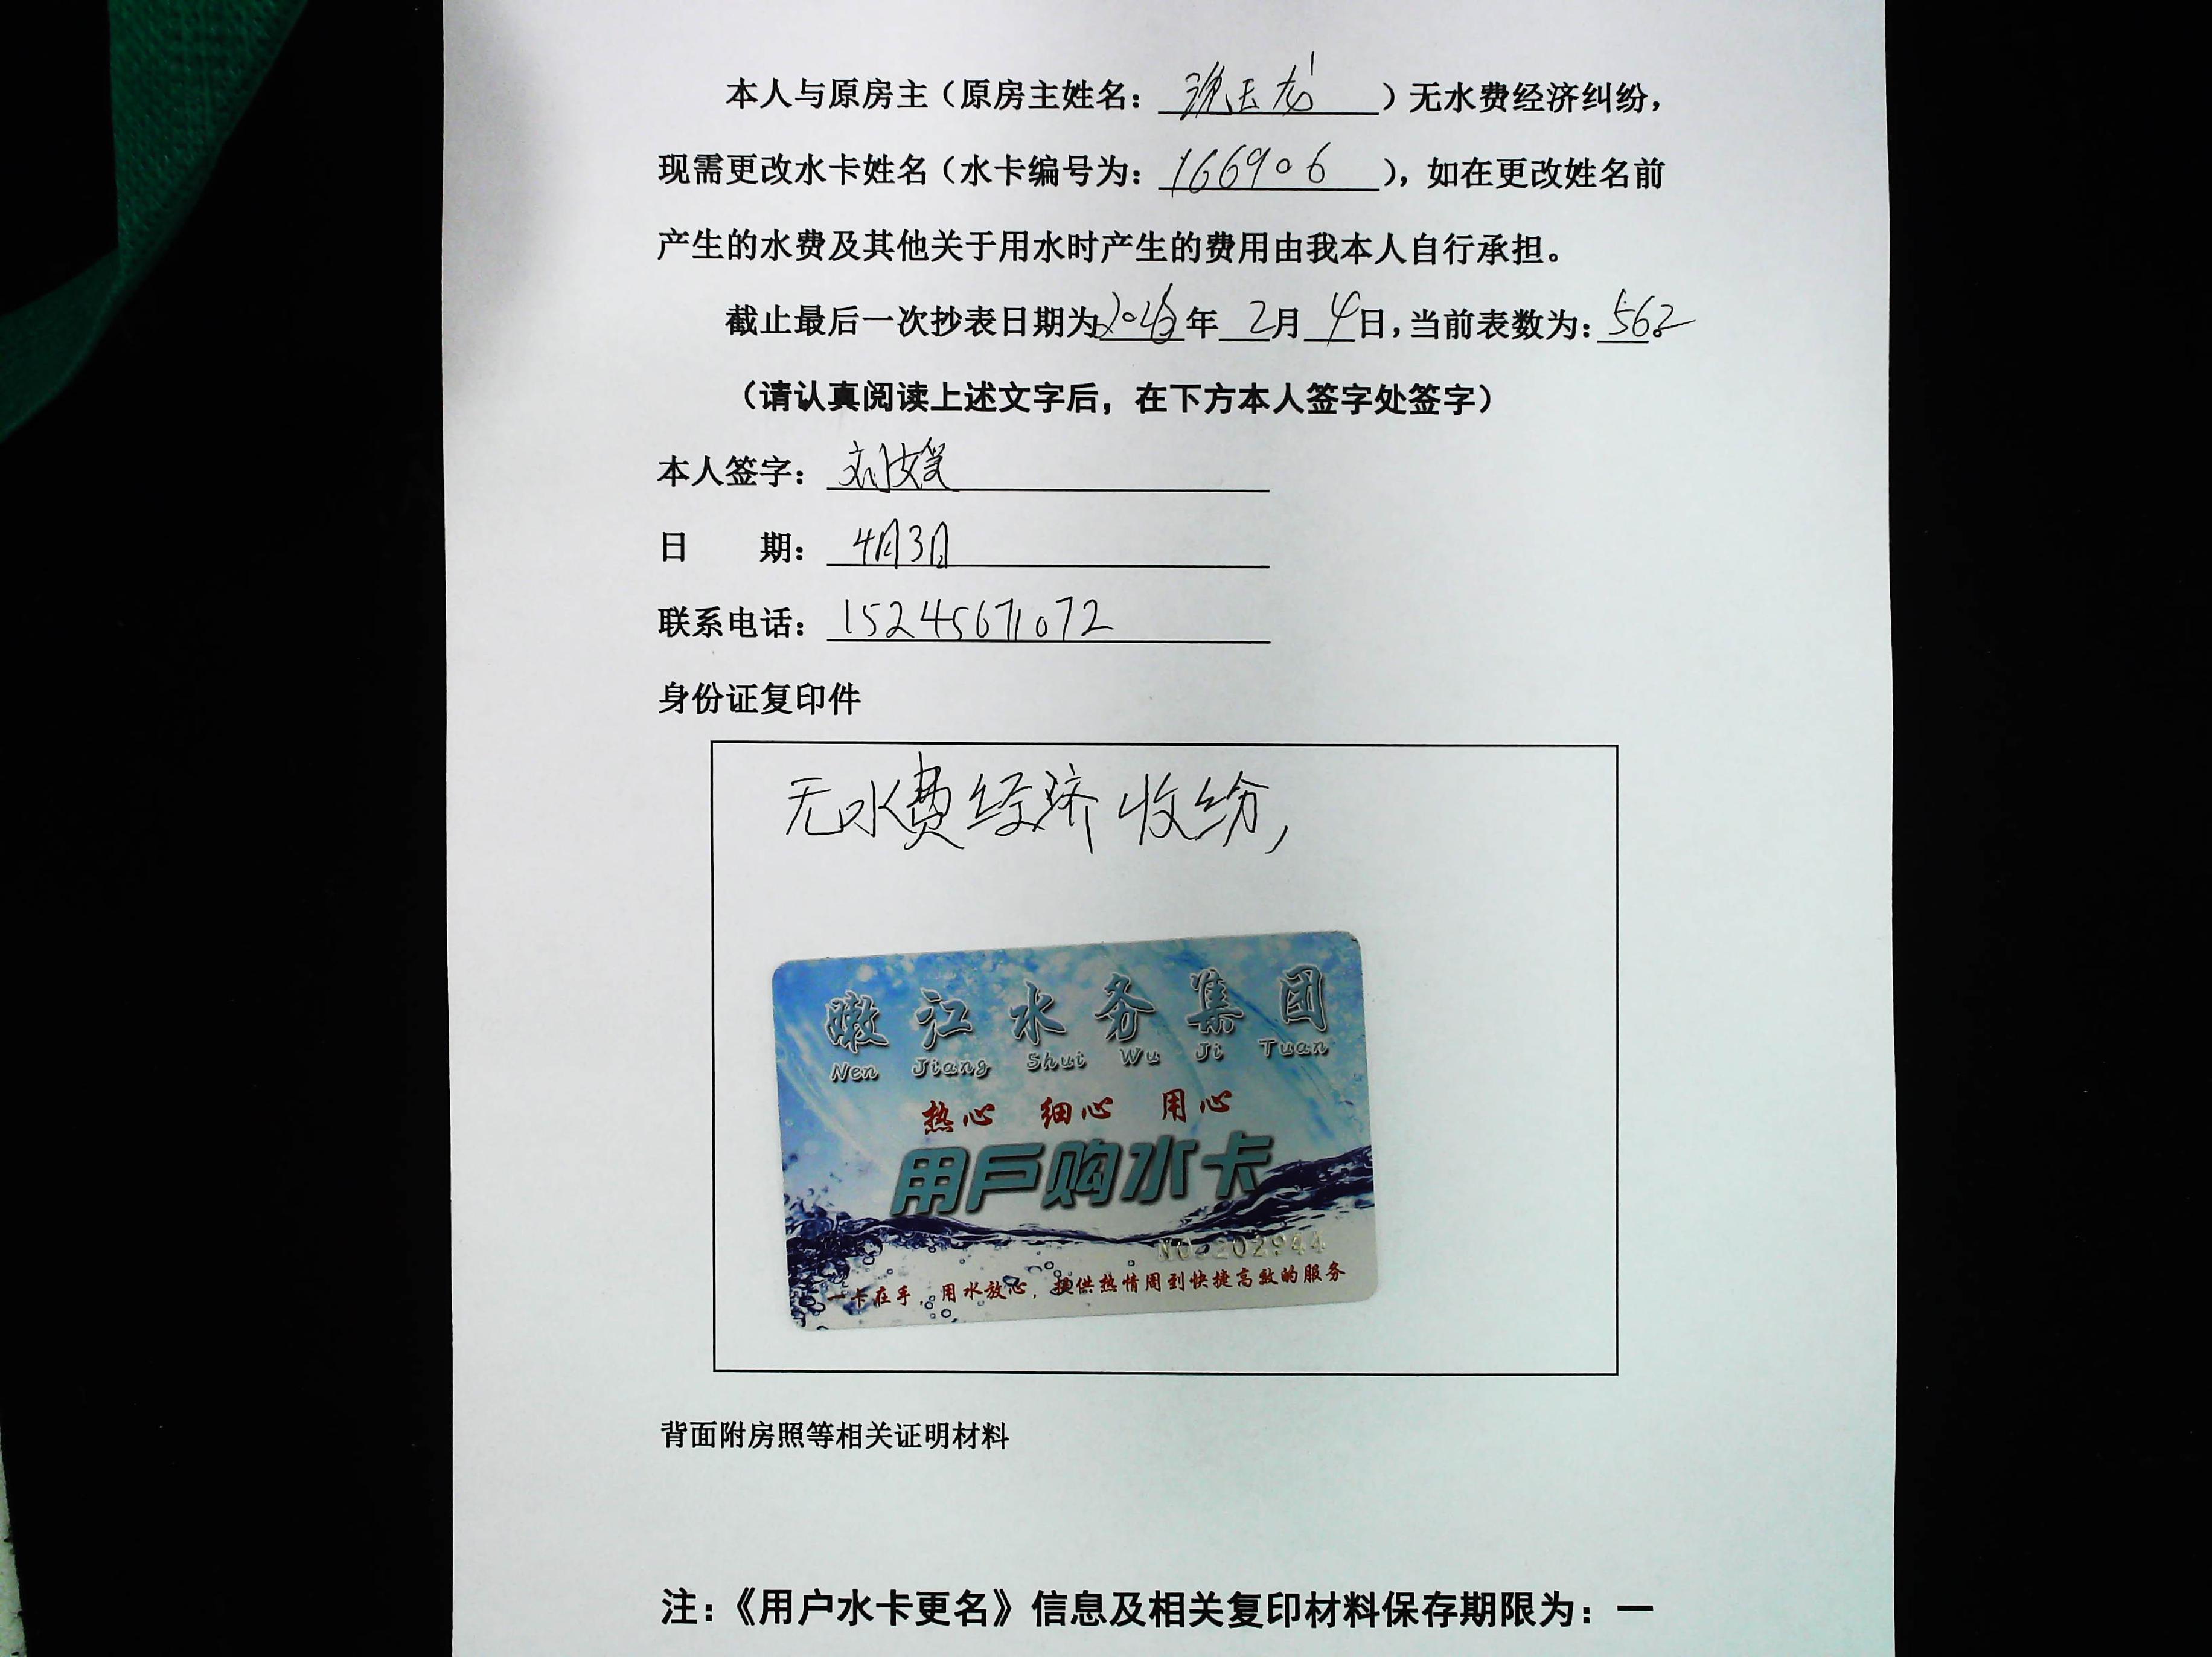 本人与原房主（原房主姓名：玉龙）无水费经济纠纷，
现需更改水卡姓名（水卡编号为：166906），如在更改姓名前
产生的水费及其他关于用水时产生的费用由我本人自行承担。
截止最后一次抄表日期为年2月4日，当前表数为：562。
（请认真阅读上述文字后，在下方本人签字处签字）
本人签字：刘媛
日 期：4月3日
联系电话：15245671072
身份证复印件
无水费经济收纷，
嫩江水务集团
Nen Jiang Shui Wu Ji Tuan
热心 细心 用心
用户购水卡
NO.202944
一卡在手，用水放心，提供热情周到快捷高效的服务
背面附房照等相关证明材料
注：《用户水卡更名》信息及相关复印材料保存期限为：一